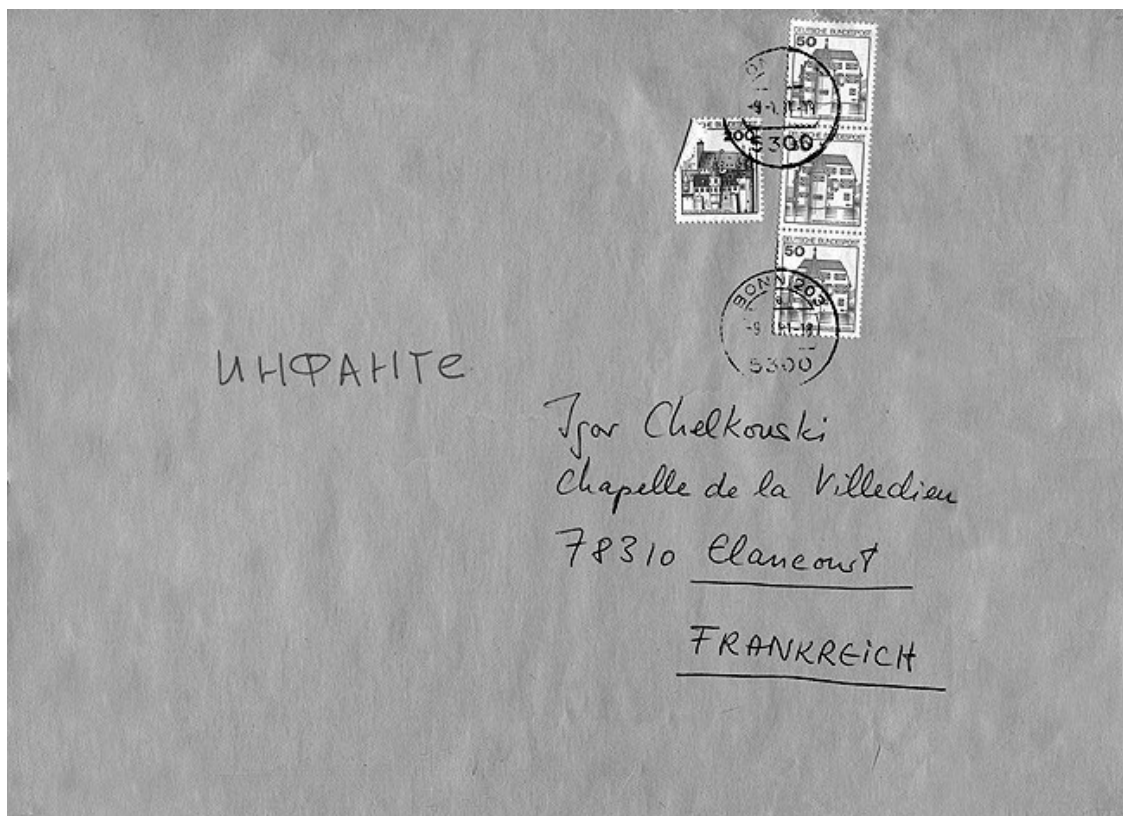 DEUTSCHE BUNDESPOST
50
200
5300
DEUTSCHE BUNDESPOST
50
BONN 203
5300
ИНФАНТе
Igor Chelkowski
Chapelle de la Villedieu
78310 Elancourt
FRANKREiCH